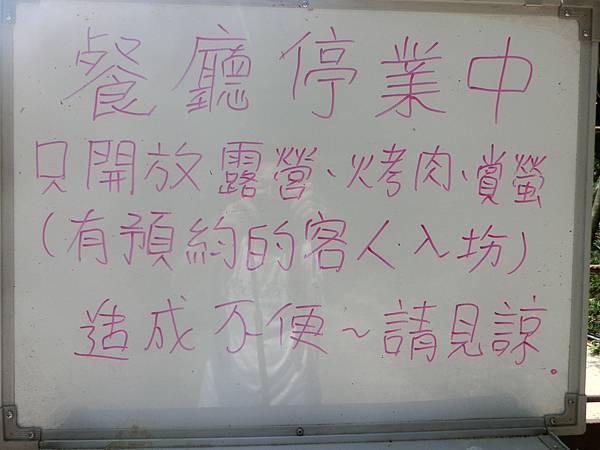 餐廳停業中
只開放露營、烤肉、賞螢
(有預約的客人入坊)
造成不便~請見諒。